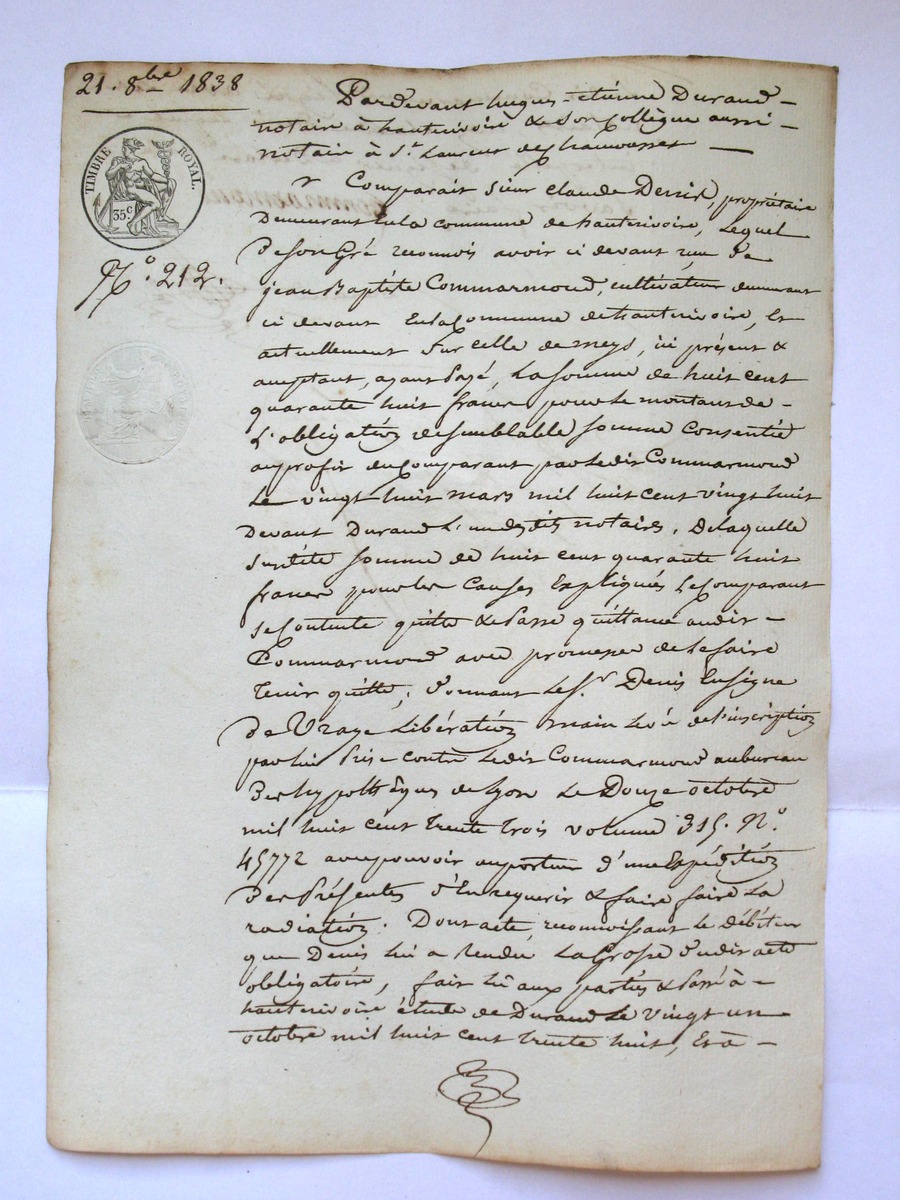 21. 8bre 1838
TIMBRE ROYAL.
35c
No. 212.
Pardevant hugues-étienne Durand
notaire à hauterivoire & son Collègue aussi
notaire à St. Laurent de Chamousset
Comparait sieur Claude Denis, propriétaire
Demeurant en la commune de hauterivoire, Lequel
De son Gré reconnois avoir ci devant reçu de
jean Baptiste Commarmond, cultivateur demeurant
ci devant en la Commune de hauterivoire, Et
actuellement sur celle de meys, ici présent &
acceptant, ayant Payé, La somme de huit cent
quarante huit francs pour le montant de
L'obligation de semblable somme Consentie
au profit du Comparant par Ledit Commarmond
Le vingt huit mars mil huit cent vingt huit
Devant Durand L'un desdits notaires, De laquelle
susdite somme de huit cent quarante huit
francs pour les Causes Expliqués Le Comparant
se Contente quitte & Passe quittance audit
Commarmond avec promesse de le faire
tenir quitte, Donnant Le Sr Denis En signe
De Vraye Libération main Levée de l'inscription
par lui Prise contre Ledit Commarmond au bureau
Des hypothèques de Lyon Le Douze octobre
mil huit cent trente trois volume 315. No.
45772 avec pouvoir au porteur d'une Expédition
Des Présentes d'En requerir & faire faire La
radiation. Dont acte, reconnoissant Le débiteur
que Denis lui a Rendu La Grosse dudit acte
obligatoire, fait Lû aux parties & Passé à
hauterivoire étude de Durand Le vingt un
octobre mil huit cent trente huit, Et à